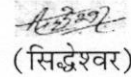 (सिद्धेश्वर)